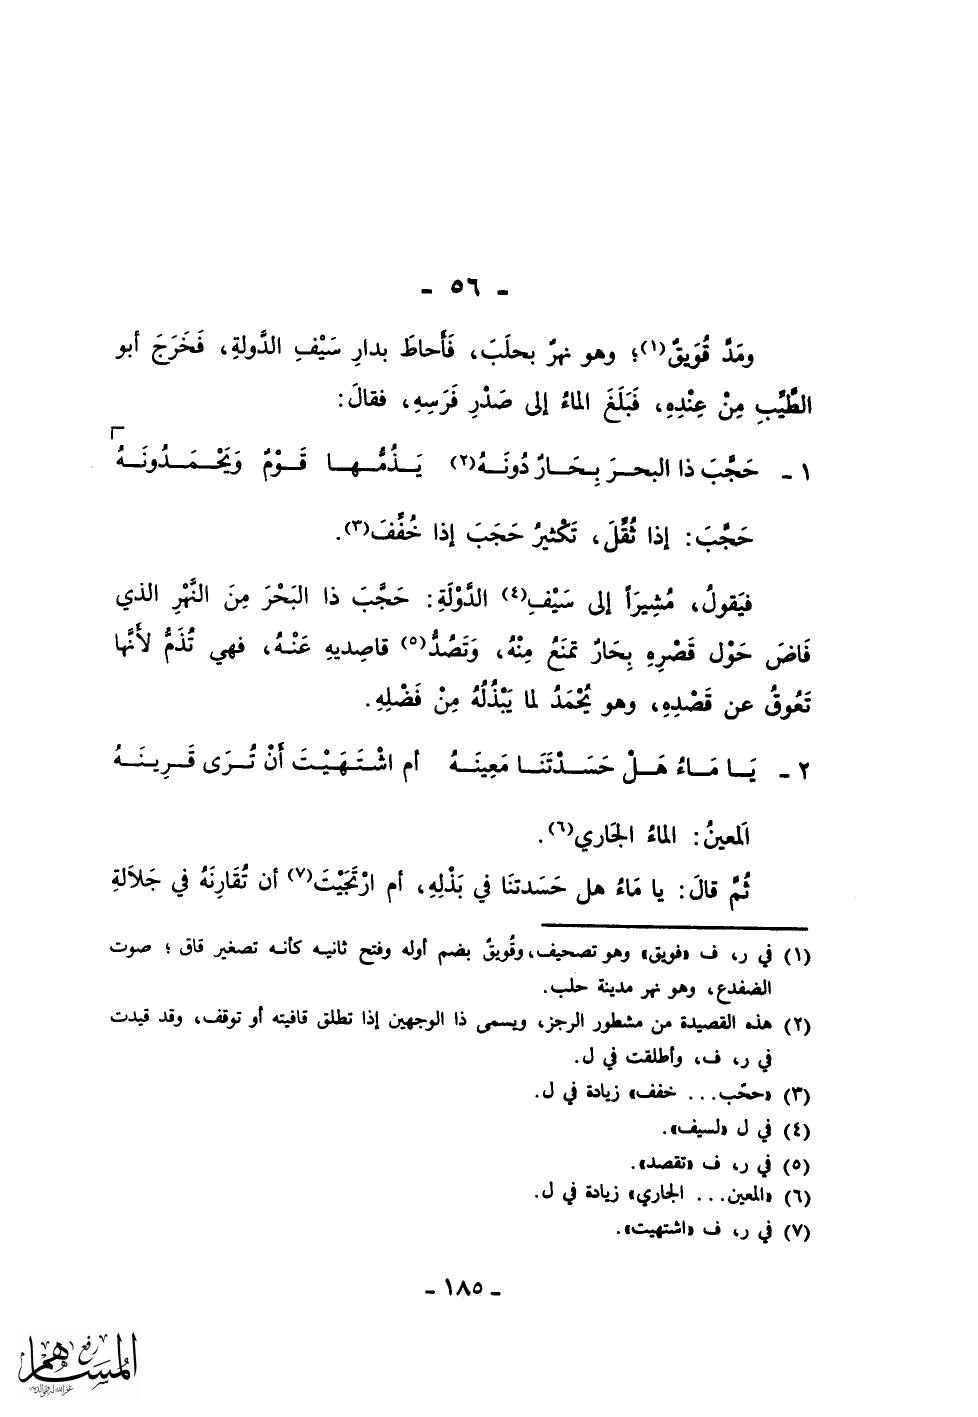 - ٥٦ -
ومَدَّ قُوَيقٌ(١)؛ وهو نهرٌ بحلَبَ، فَأَحاطَ بدارِ سَيْفِ الدَّولةِ، فَخَرَجَ أبو
الطَّيِّبِ مِنْ عِنْدِهِ، فَبَلَغَ الماءُ إلى صَدْرِ فَرَسِهِ، فقالَ:
١ - حَجَّبَ ذا البحرَ بِحَارٌ دُونَهُ(٢) يَذُمُّها قَوْمٌ وَيَحْمَدُونَهُ
حَجَّبَ: إذا ثُقِّلَ، تَكْثيرُ حَجَبَ إذا خُفِّفَ(٣).
فيَقولُ، مُشِيرَاً إلى سَيْفِ(٤) الدَّوْلَةِ: حَجَّبَ ذا البَحْرَ مِنَ النَّهْرِ الذي
فَاضَ حَوْل قَصْرِهِ بِحَارٌ تمنَعُ مِنْهُ، وَتَصُدُّ(٥) قاصِديهِ عَنْهُ، فهي تُذَمُّ لأَنَّها
تَعُوقُ عن قَصْدِهِ، وهو يُحْمَدُ لما يَبْذُلُهُ مِنْ فَضْلِهِ.
٢ - يَا مَاءُ هَلْ حَسَدْتَنَا مَعِينَهُ أم اشْتَهَيْتَ أَنْ تُرَى قَرِينَهُ
اَلمعينُ: الماءُ الجَاري(٦).
ثُمَّ قالَ: يا مَاءُ هل حَسَدتنَا في بَذْلِهِ، أم ارْتَجَيْتَ(٧) أن تُقَارِنَهُ في جَلاَلةِ
(١) في ر، ف «فويق» وهو تصحيف، وقُويقٌ بضم أوله وفتح ثانيه كأنه تصغير قاق ؛ صوت
الضفدع، وهو نهر مدينة حلب.
(٢) هذه القصيدة من مشطور الرجز، ويسمى ذا الوجهين إذا تطلق قافيته أو توقف، وقد قيدت
في ر، ف، وأطلقت في ل.
(٣) «حجّب... خفف» زيادة في ل.
(٤) في ل «لسيف».
(٥) في ر، ف «تقصد».
(٦) «المعين... الجاري» زيادة في ل.
(٧) في ر، ف «اشتهيت».
- ١٨٥ -
رفع
المساهم